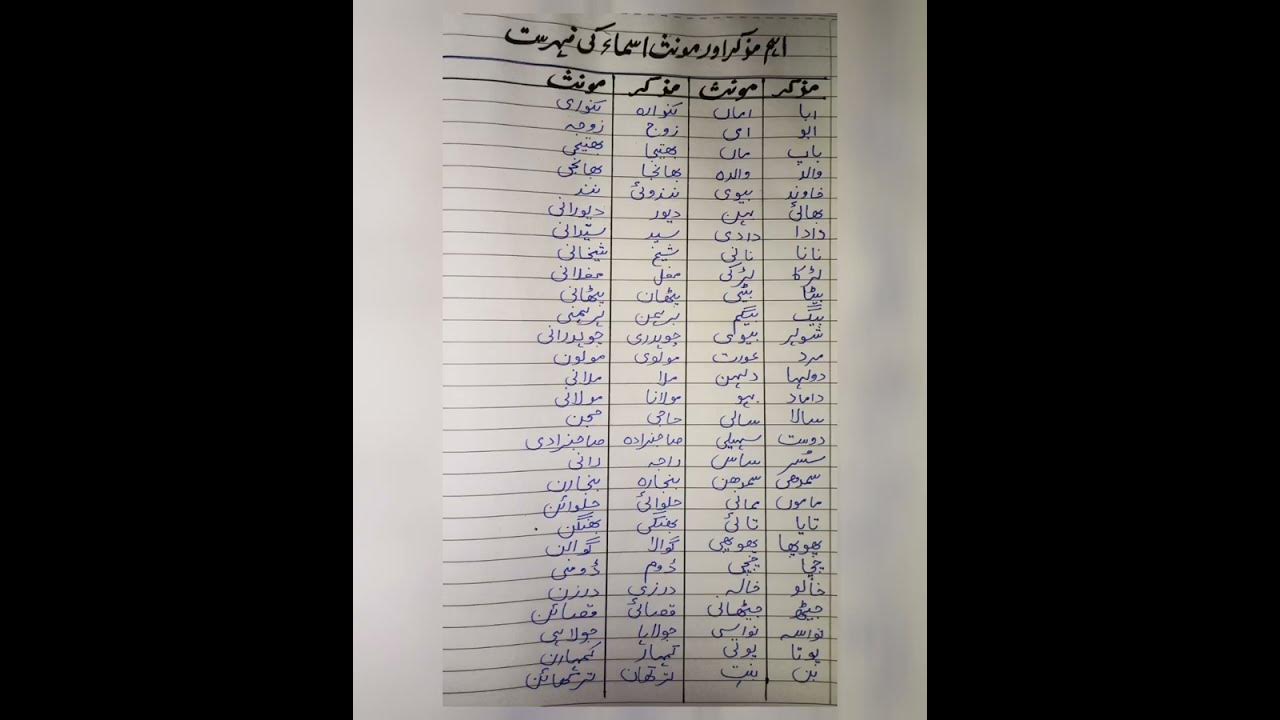 اہم مؤکر اور مونث اسماء کی فہرست
مذکر مونث مذکر مونث
ابا اماں کنوارہ کنواری
ابو امی زوج زوجہ
باپ ماں بھتیجا بھتیجی
والد والدہ بھانجا بھانجی
خاوند بیوی نندوئی نند
بھائی بہن دیور دیورانی
دادا دادی سید سیّدانی
نانا نانی شیخ شیخانی
لڑکا لڑکی مغل مغلانی
بیٹا بیٹی پٹھان پٹھانی
بیگ بیگم برہمن برہمنی
شوہر بیوی چوہدری چوہدرانی
مرد عورت مولوی مولون
دولہا دلہن ملا ملانی
داماد بہو مولانا مولانی
سالا سالی حاجی حجن
دوست سہیلی صاحبزادہ صاحبزادی
سسر ساس راجہ رانی
سمدھی سمدھن بنجارہ بنجارن
ماموں ممانی حلوائی حلوائن
تایا تائی بھنگی بھنگن
پھوپھا پھوپھی گوالا گوالن
چچا چچی ڈوم ڈومنی
خالو خالہ درزی درزن
جیٹھ جیٹھانی قصائی قصائن
نواسہ نواسی جولاہا جولاہی
پوتا پوتی کمہار کمہارن
بن بنت ترکھان ترکھائن